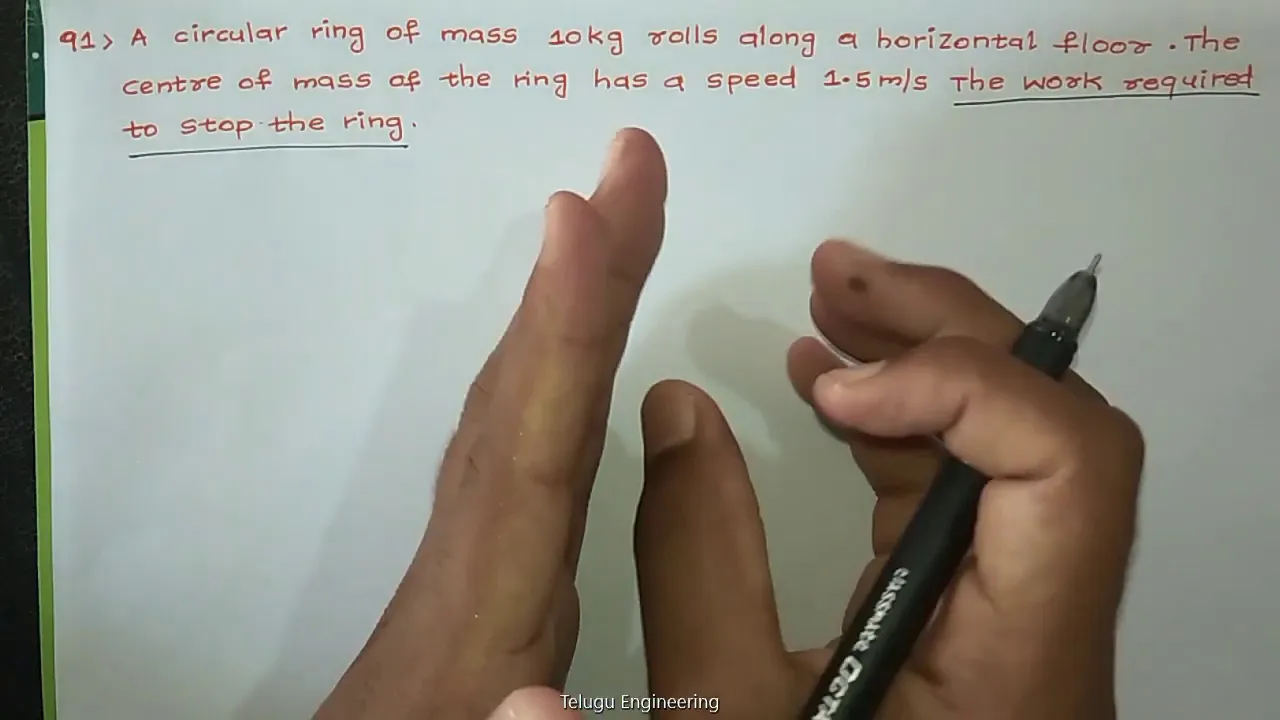 91> A circular ring of mass 10kg rolls along a horizontal floor. The
centre of mass of the ring has a speed 1.5m/s The work required
to stop the ring.
classmate OCTA
Telugu Engineering